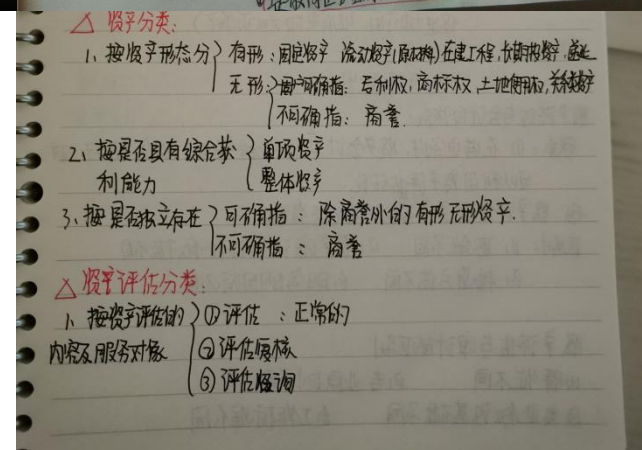 △ 资产分类:
1、按资产形态分 有形:固定资产 流动资产(原材料)在建工程,长期投资,递延
无形:可确指:专利权,商标权,土地使用权,关系类资产
不可确指:商誉.
2、按是否具有综合获 单项资产
利能力 整体资产
3、按是否独立存在 可确指:除商誉外的有形无形资产.
不可确指:商誉
△ 资产评估分类:
1、按资产评估的 ①评估:正常的
内容及服务对象 ②评估复核
③评估咨询